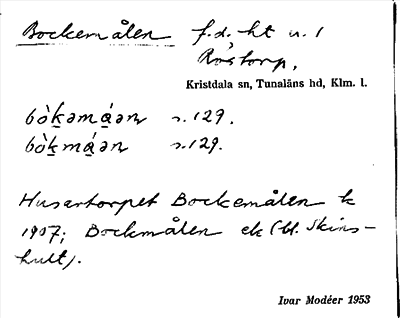 Bockemålen f.d. ht u. 1
Röstorp,
Kristdala sn, Tunaläns hd, Klm. l.
bòḵəmá̱ən s. 129.
bòḵmá̱ən s. 129.
Husartorpet Bockemålen k
1907; Bockmålen ek (bl. Skins-
hult).
Ivar Modéer 1953